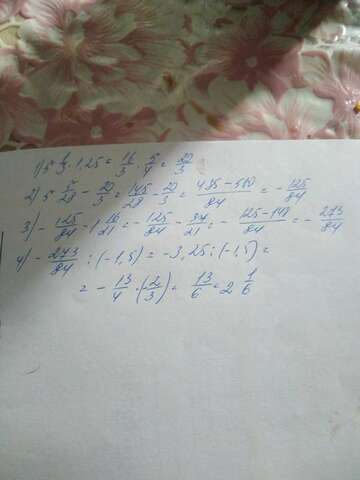 1) 5 1/3 · 1,25 = 16/3 · 5/4 = 20/3
2) 5 5/28 - 20/3 = 145/28 - 20/3 = 435-560/84 = - 125/84
3) - 125/84 - 1 16/21 = - 125/84 - 37/21 = - 125-148/84 = - 273/84
4) - 273/84 : (-1,5) = -3,25 : (-1,5) =
= - 13/4 · (- 2/3) = 13/6 = 2 1/6